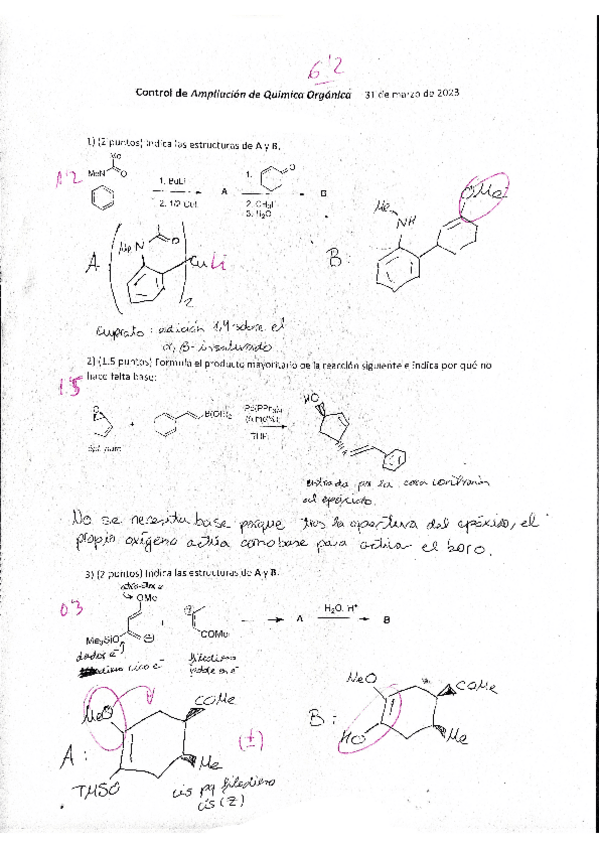 6'2
Control de Ampliación de Química Orgánica 31 de marzo de 2023
1) (2 puntos) Indica las estructuras de A y B.
1'2
Me
MeN
O
1. BuLi
2. 1/2 CuI
A
1.
O
2. CH3I
3. H2O
B
Me
NH
OMe
A
Me
N
O
CuLi
2
B:
Cuprato: adición 1,4 sobre el
α, β-insaturado
2) (1.5 puntos) Formula el producto mayoritario de la reacción siguiente e indica por qué no
hace falta base:
1.5
O
+
B(OH)2
THF
HO
entrada por la cara contraria
al epóxido.
No se necesita base porque tras la apertura del epóxido, el
propio oxígeno actúa como base para activar el boro.
3) (2 puntos) Indica las estructuras de A y B.
0'3
OMe
Me3SiO
dador e-
+
COMe
filodieno
A
H2O, H+
B
MeO
COMe
A:
TMSO
Me
(±)
cis pq filodieno
cis (Z)
B:
MeO
COMe
HO
Me